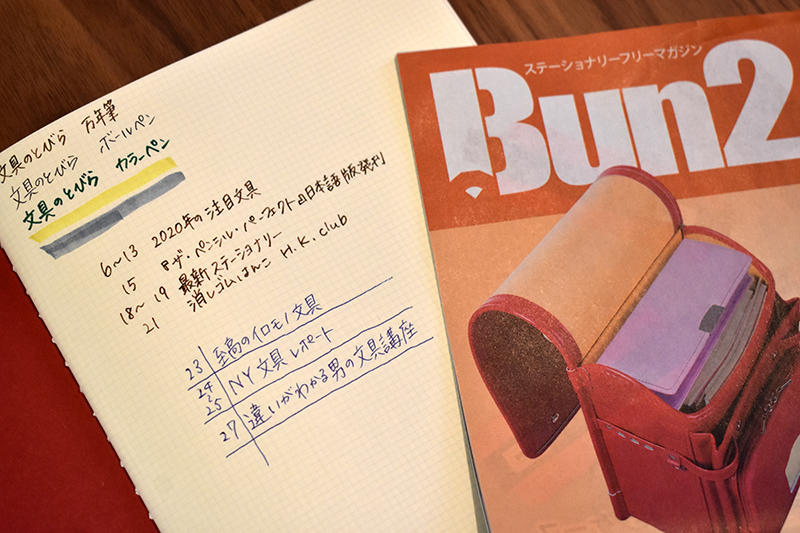 文具のとびら 万年筆
文具のとびら ボールペン
文具のとびら カラーペン
6~13 2020年の注目文具
15 『ザ・ペンシル・パーフェクト』日本語版発刊
18~19 最新ステーショナリー
21 消しゴムはんこ H.K.club
23 至高のイロモノ文具
24
25 NY文具レポート
27 違いがわかる男の文具講座
ステーショナリーフリーマガジン
Bun2